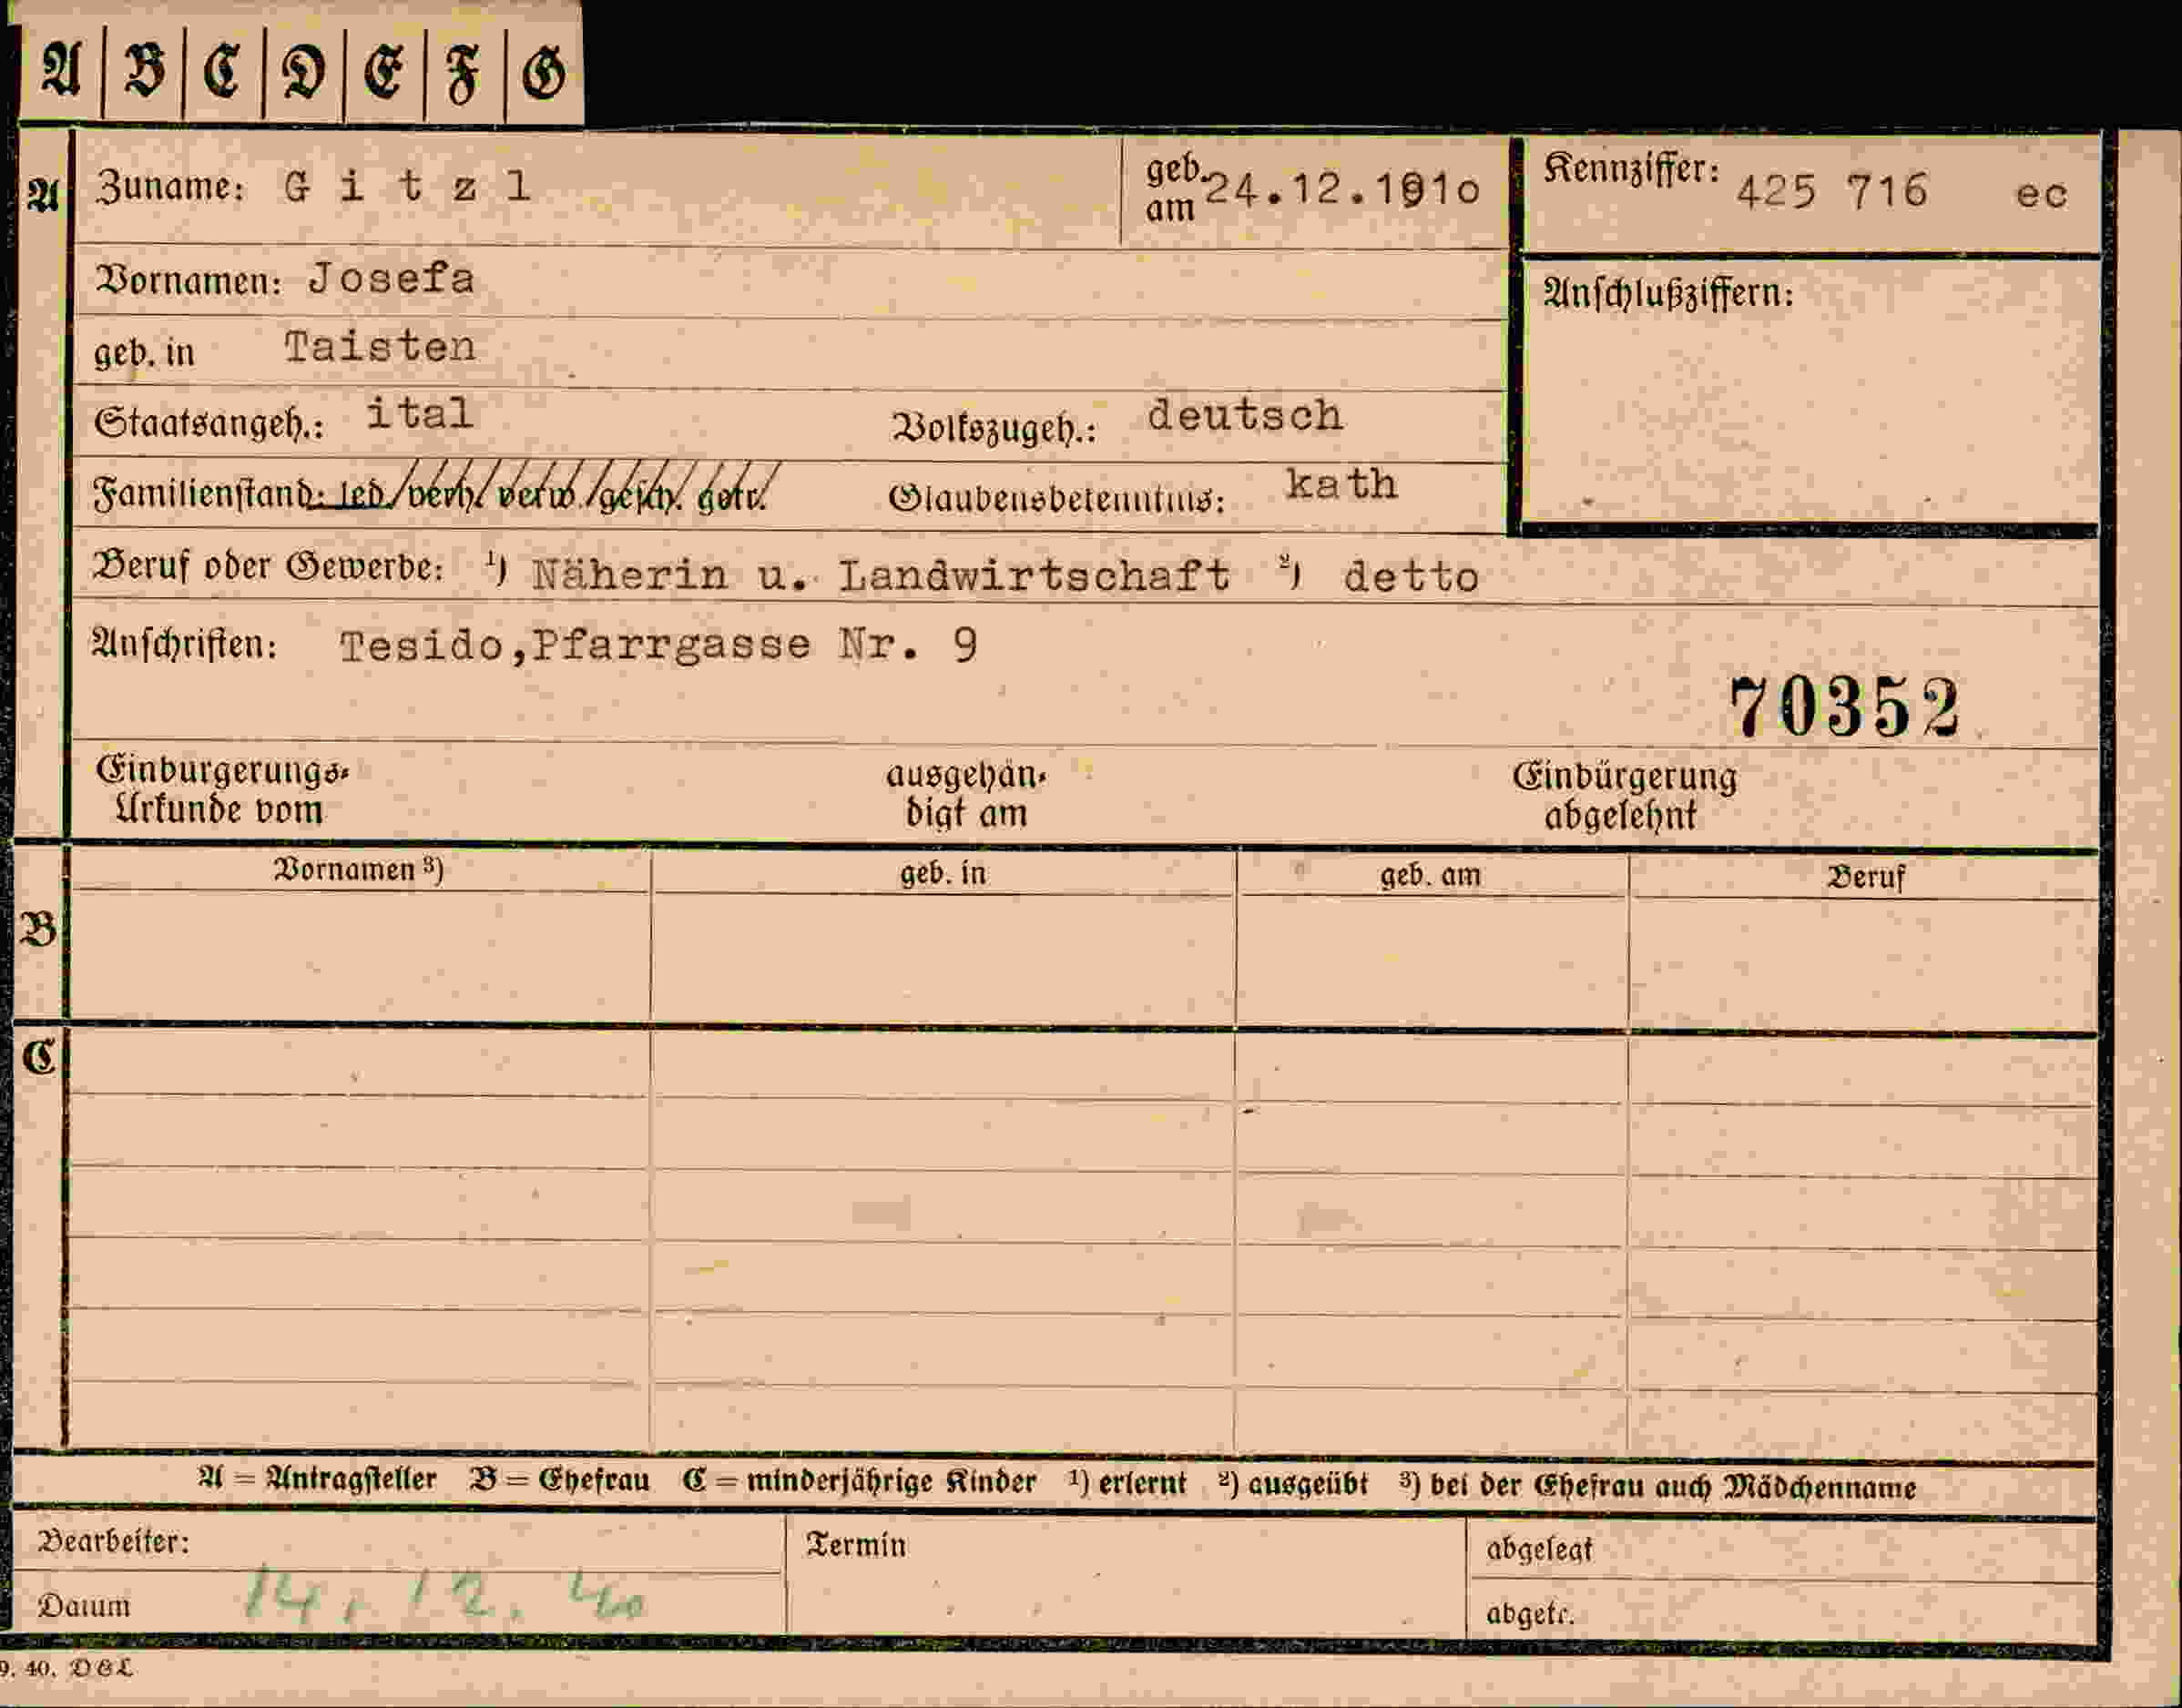 A B C D E F G
A Zuname: G i t z l geb. am 24.12.1910 Kennziffer: 425 716 ec
Vornamen: Josefa
Anschlußziffern:
geb. in Taisten
Staatsangeh.: ital Volkszugeh.: deutsch
Familienstand: led./verh./verw./gesch. getr. Glaubensbekenntnis: kath
Beruf oder Gewerbe: ¹) Näherin u. Landwirtschaft ²) detto
Anschriften: Tesido,Pfarrgasse Nr. 9
70352
Einbürgerungs- ausgehän- Einbürgerung
Urkunde vom digt am abgelehnt
Vornamen ³) geb. in geb. am Beruf
B
C
A = Antragsteller B = Ehefrau C = minderjährige Kinder ¹) erlernt ²) ausgeübt ³) bei der Ehefrau auch Mädchenname
Bearbeiter: Termin abgelegt
Datum 14. 12. 40 abgetr.
9. 40. D&L